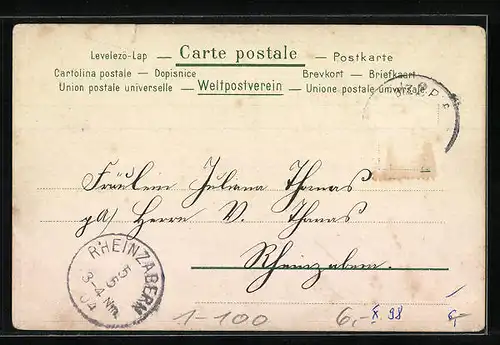 Levelező-Lap — Carte postale — Postkarte
Cartolina postale — Dopisnice Brevkort — Briefkaart
Union postale universelle — Weltpostverein — Unione postale universale
Fräulein Juliana Thomas
p/A/ Herrn V. Thomas
Rheinzabern.
RHEINZABERN
5
5
3-4 Nm.
04
1-100 6,- X. 98 6,-